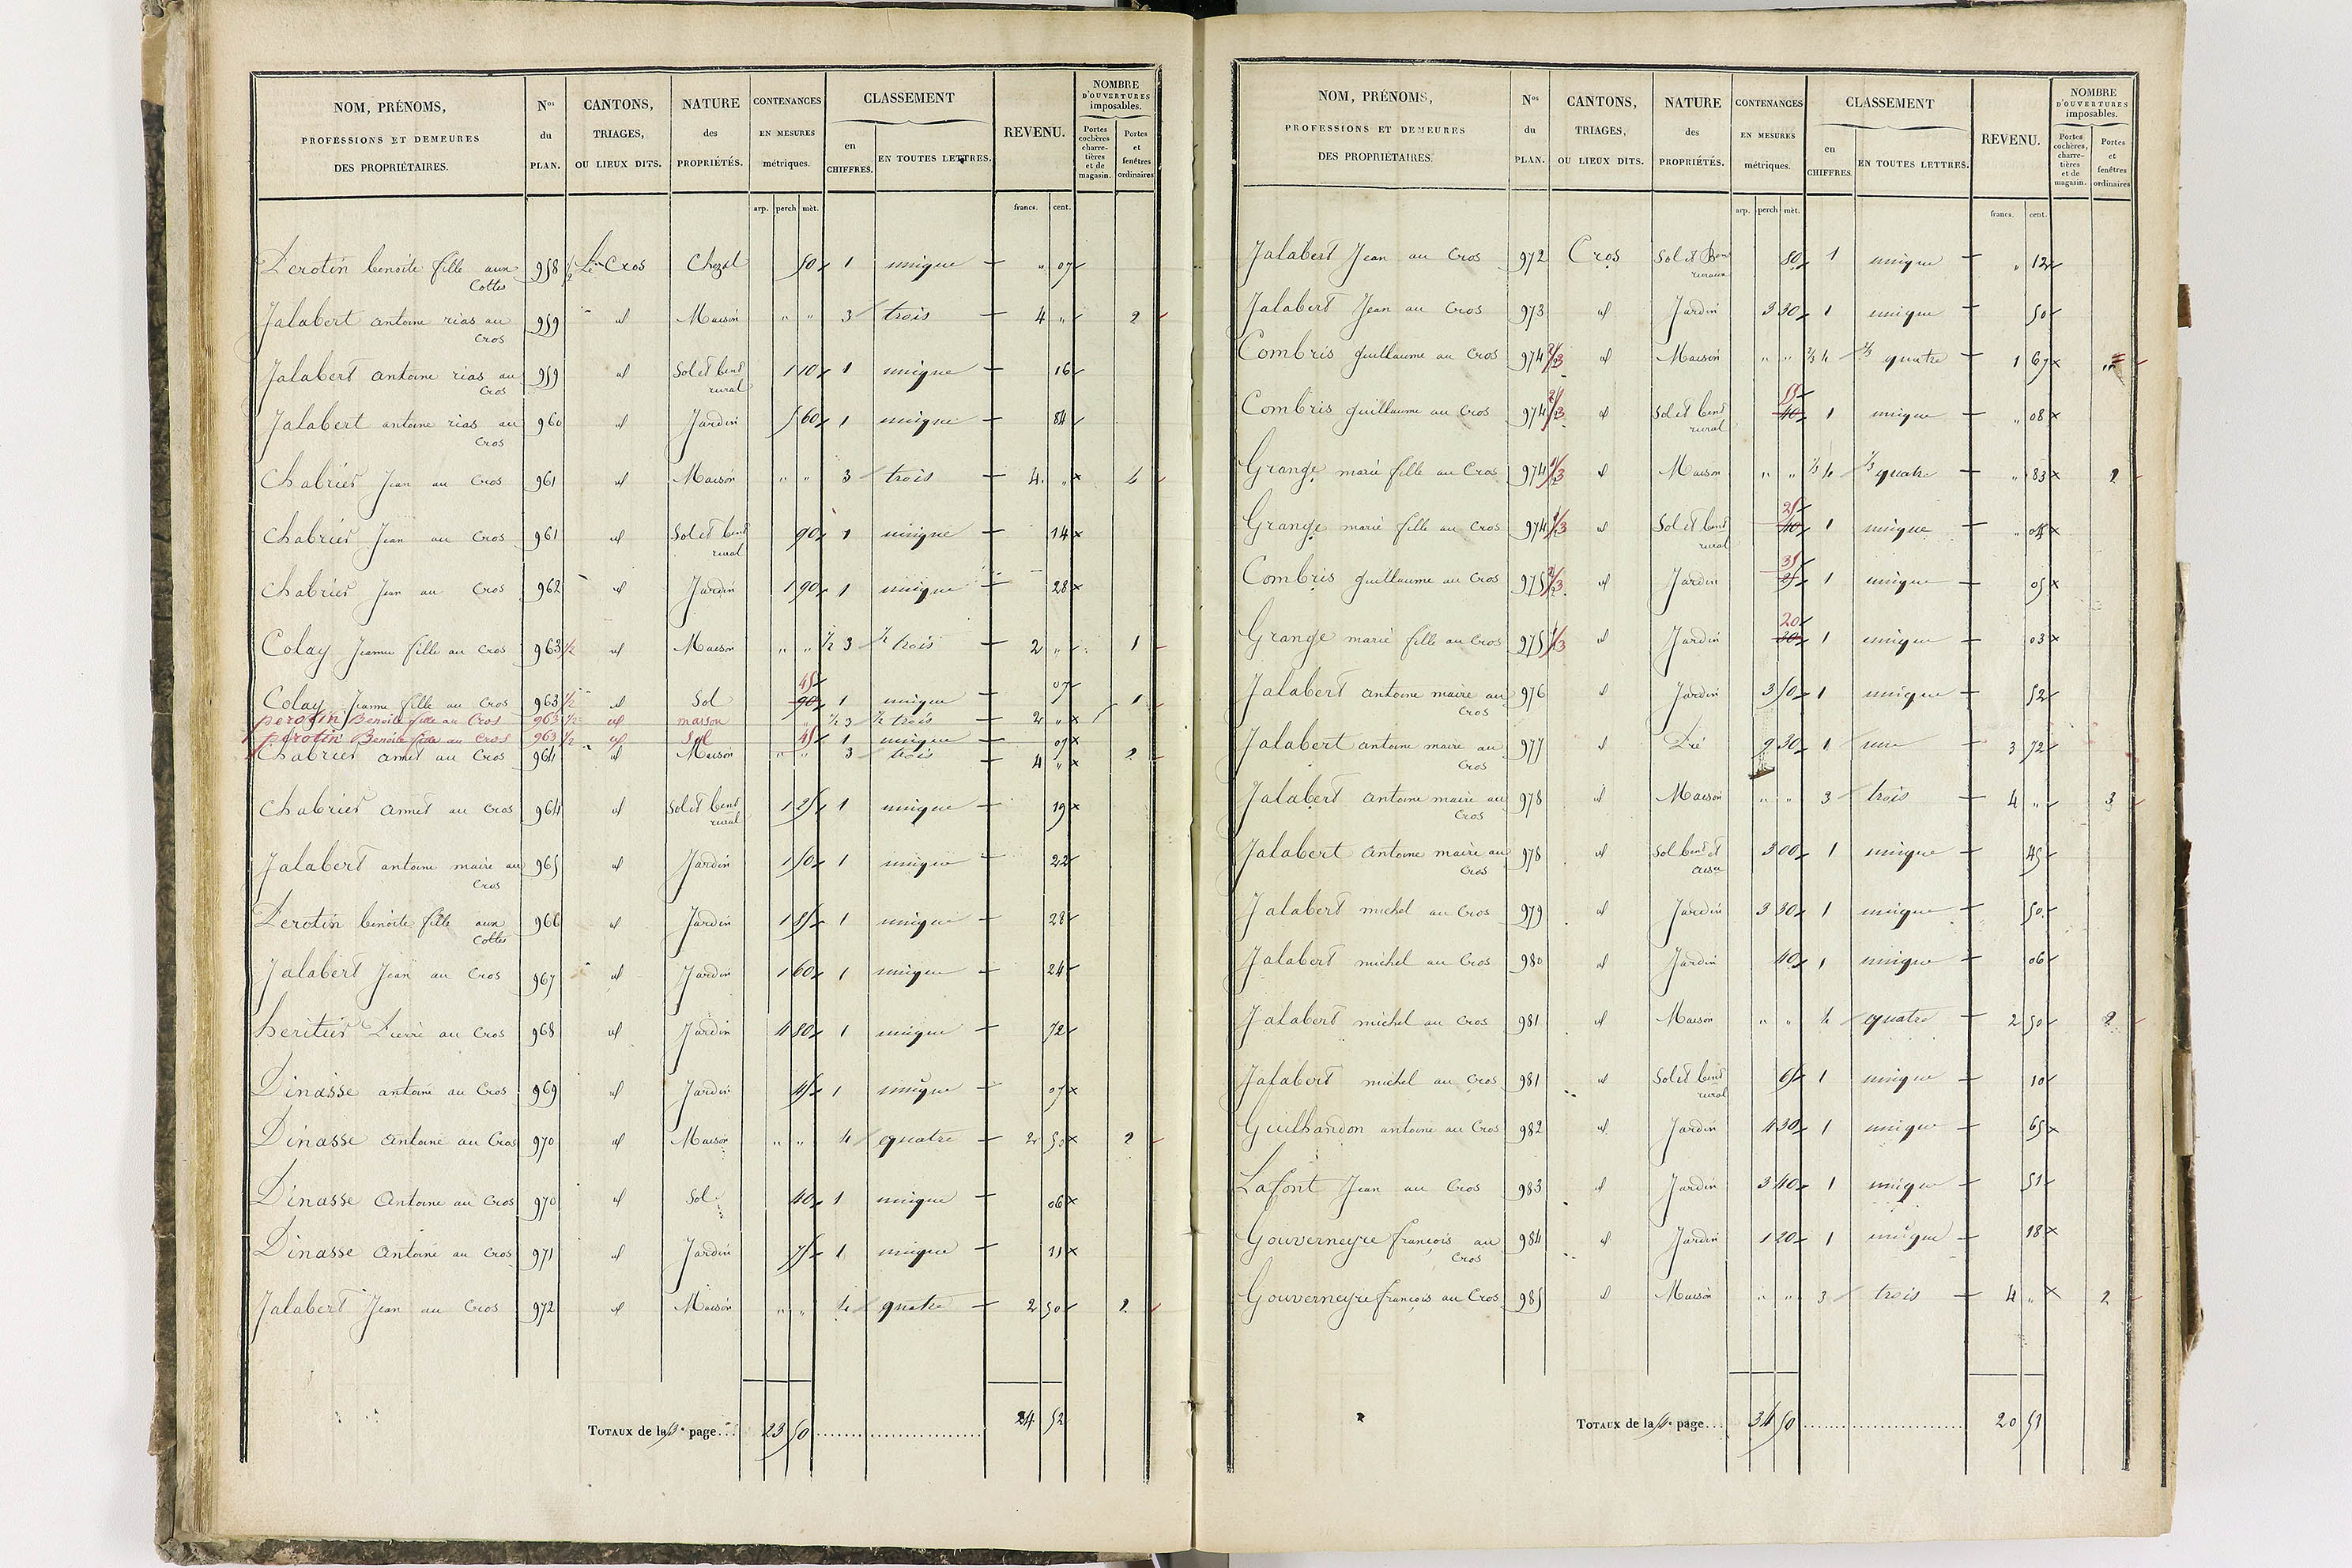 NOM, PRÉNOMS, PROFESSIONS ET DEMEURES DES PROPRIÉTAIRES. | Nos du PLAN. | CANTONS, TRIAGES, OU LIEUX DITS. | NATURE des PROPRIÉTÉS. | CONTENANCES EN MESURES métriques. | CLASSEMENT en CHIFFRES. | EN TOUTES LETTRES. | REVENU. | NOMBRE D'OUVERTURES imposables. Portes cochères charretières et de magasin. | Portes et fenêtres ordinaires
arp. perch mèt. francs. cent.
Perotin benoite fille aux Cottes 958 1/2 Le Cros Chezal 50 1 unique " 07
Jalabert antoine rias au Cros 959 id Maison " " 3 trois 4 " 2
Jalabert antoine rias au Cros 959 id Sol et bent rural 1 10 1 unique 16
Jalabert antoine rias au Cros 960 id Jardin 5 60 1 unique 84
Chabrier Jean au Cros 961 id Maison " " 3 trois 4 " 4
Chabrier Jean au Cros 961 id Sol et bent rural 90 1 unique 14
Chabrier Jean au Cros 962 id Jardin 1 90 1 unique 28
Colay Jeanne fille au Cros 963 1/2 id Maison " " 1/2 3 1/2 trois 2 " 1
Colay Jeanne fille au Cros 963 1/2 id Sol 90 45 1 unique 07
perotin Benoite fille au Cros 963 1/2 id maison " 1/2 3 1/2 trois 2 " 1
perotin Benoite fille au Cros 963 1/2 id Sol 45 1 unique 07
Chabrier Annet au Cros 964 id Maison " " 3 trois 4 " 2
Chabrier Annet au Cros 964 id Sol et bent rural 1 25 1 unique 19
Jalabert antoine maire au Cros 965 id Jardin 1 50 1 unique 22
Perotin benoite fille aux Cottes 966 id Jardin 1 85 1 unique 28
Jalabert Jean au Cros 967 id Jardin 1 60 1 unique 24
heritier Pierre au Cros 968 id Jardin 4 80 1 unique 72
Dinasse antoine au Cros 969 id Jardin 45 1 unique 07
Dinasse antoine au Cros 970 id Maison " " 4 quatre 2 50 2
Dinasse Antoine au Cros 970 id Sol 40 1 unique 06
Dinasse Antoine au Cros 971 id Jardin 75 1 unique 11
Jalabert Jean au Cros 972 id Maison " " 4 quatre 2 50 2
TOTAUX de la 3e page... 23 50 24 52
NOM, PRÉNOMS, PROFESSIONS ET DEMEURES DES PROPRIÉTAIRES. | Nos du PLAN. | CANTONS, TRIAGES, OU LIEUX DITS. | NATURE des PROPRIÉTÉS. | CONTENANCES EN MESURES métriques. | CLASSEMENT en CHIFFRES. | EN TOUTES LETTRES. | REVENU. | NOMBRE D'OUVERTURES imposables. Portes cochères, charretières et de magasin. | Portes et fenêtres ordinaires
arp. perch mèt. francs. cent.
Jalabert Jean au Cros 972 Cros Sol et Bent ruraux 80 1 unique " 12
Jalabert Jean au Cros 973 id Jardin 3 30 1 unique 50
Combris guillaume au Cros 974 2/3 id Maison " " 2/3 4 2/3 quatre 1 67
Combris guillaume au Cros 974 2/3 id Sol et bent rural 40 55 1 unique " 08
Grange marie fille au Cros 974 1/3 id Maison " " 1/3 4 1/3 quatre " 83 2
Grange marie fille au Cros 974 1/3 id Sol et bent rural 40 25 1 unique " 04
Combris guillaume au Cros 975 2/3 id Jardin 35 1 unique 05
Grange marie fille au Cros 975 1/3 id Jardin 20 1 unique 03
Jalabert antoine maire au Cros 976 id Jardin 3 50 1 unique 52
Jalabert antoine maire au Cros 977 id Pré 9 30 1 une 3 72
Jalabert antoine maire au Cros 978 id Maison " " 3 trois 4 " 3
Jalabert Antoine maire au Cros 978 id Sol bent et aisce 3 00 1 unique 45
Jalabert michel au Cros 979 id Jardin 3 30 1 unique 50
Jalabert michel au Cros 980 id Jardin 40 1 unique 06
Jalabert michel au Cros 981 id Maison " " 4 quatre 2 50 2
Jalabert michel au Cros 981 id Sol et bent rural 65 1 unique 10
Guilhandon antoine au Cros 982 id Jardin 4 30 1 unique 65
Lafont Jean au Cros 983 id Jardin 3 40 1 unique 51
Gouverneyre françois au Cros 984 id Jardin 1 20 1 unique 18
Gouverneyre françois au Cros 985 id Maison " " 3 trois 4 " 2
TOTAUX de la 4e page... 34 50 20 51